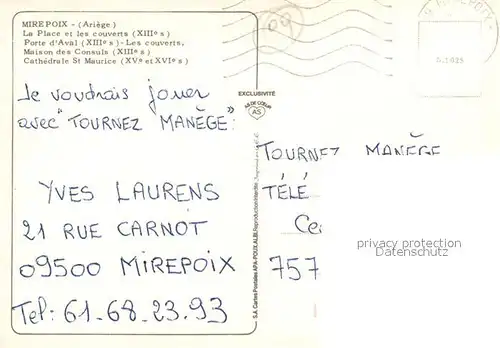 MIREPOIX - (Ariège)
La Place et les couverts (XIIIe s)
Porte d'Aval (XIIIe s) - Les couverts,
Maison des Consuls (XIIIe s)
Cathédrale St Maurice (XVe et XVIe s)
EXCLUSIVITÉ
AS DE COEUR
AS
Je voudrais jouer
avec "TOURNEZ MANÈGE"
YVES LAURENS
21 RUE CARNOT
09500 MIREPOIX
Tel: 61-68.23.93
S.A. Cartes Postales APA-POUX ALBI Reproduction interdite
TOURNEZ MANÈGE
TÉLÉ
757
privacy protection
Datenschutz